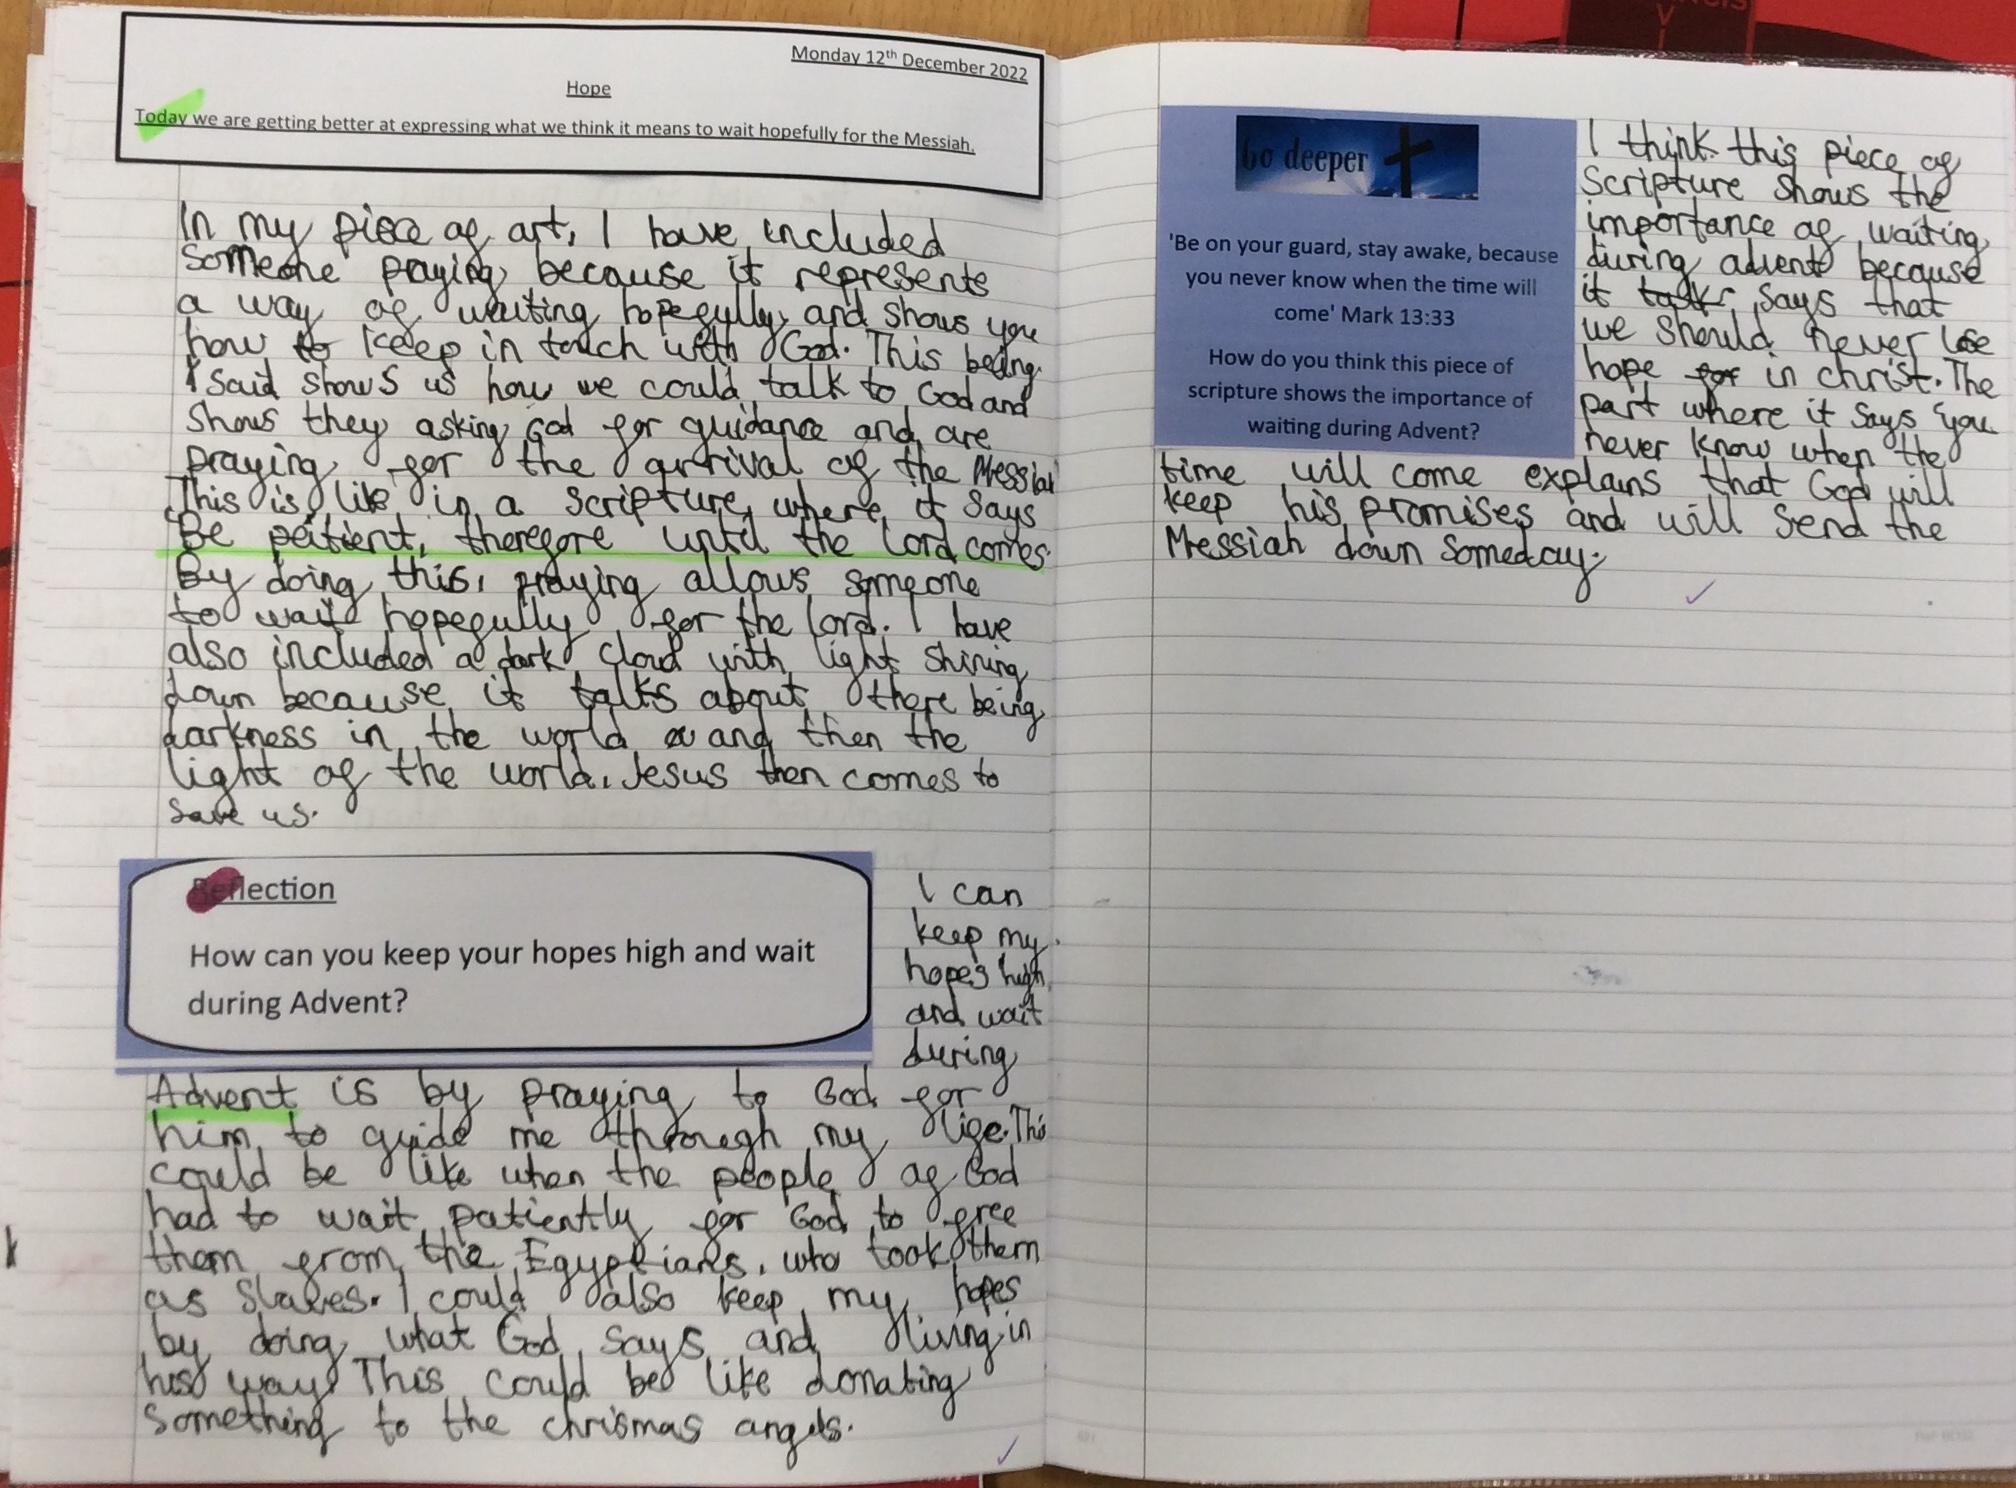 Monday 12th December 2022
Hope
Today we are getting better at expressing what we think it means to wait hopefully for the Messiah.
In my piece of art, I have included
someone praying because it represents
a way of waiting hopefully and shows you
how to keep in touch with God. This being
I said shows us how we could talk to God and
shows they asking God for guidance and are
praying for the arrival of the Messiah
This is like in a scripture where it says
'Be patient, therefore until the Lord comes.
By doing this, praying allows someone
to wait hopefully for the lord. I have
also included a dark cloud with light shining
down because it talks about there being
darkness in the world and then the
light of the world. Jesus then comes to
save us.
Reflection
How can you keep your hopes high and wait
during Advent?
I can
keep my
hopes high
and wait
during
Advent is by praying to God for
him to guide me through my life. This
could be like when the people of God
had to wait patiently for God to free
them from the Egyptians, who took them
as slaves. I could also keep my hopes
by doing what God says and living in
his way This could be like donating
something to the chrismas angels.
Go deeper
'Be on your guard, stay awake, because
you never know when the time will
come' Mark 13:33
How do you think this piece of
scripture shows the importance of
waiting during Advent?
I think this piece of
scripture shows the
importance of waiting
during advent because
it talks says that
we should never lose
hope for in christ. The
part where it says 'you
never know when the
time will come explains that God will
keep his promises and will send the
Messiah down someday.